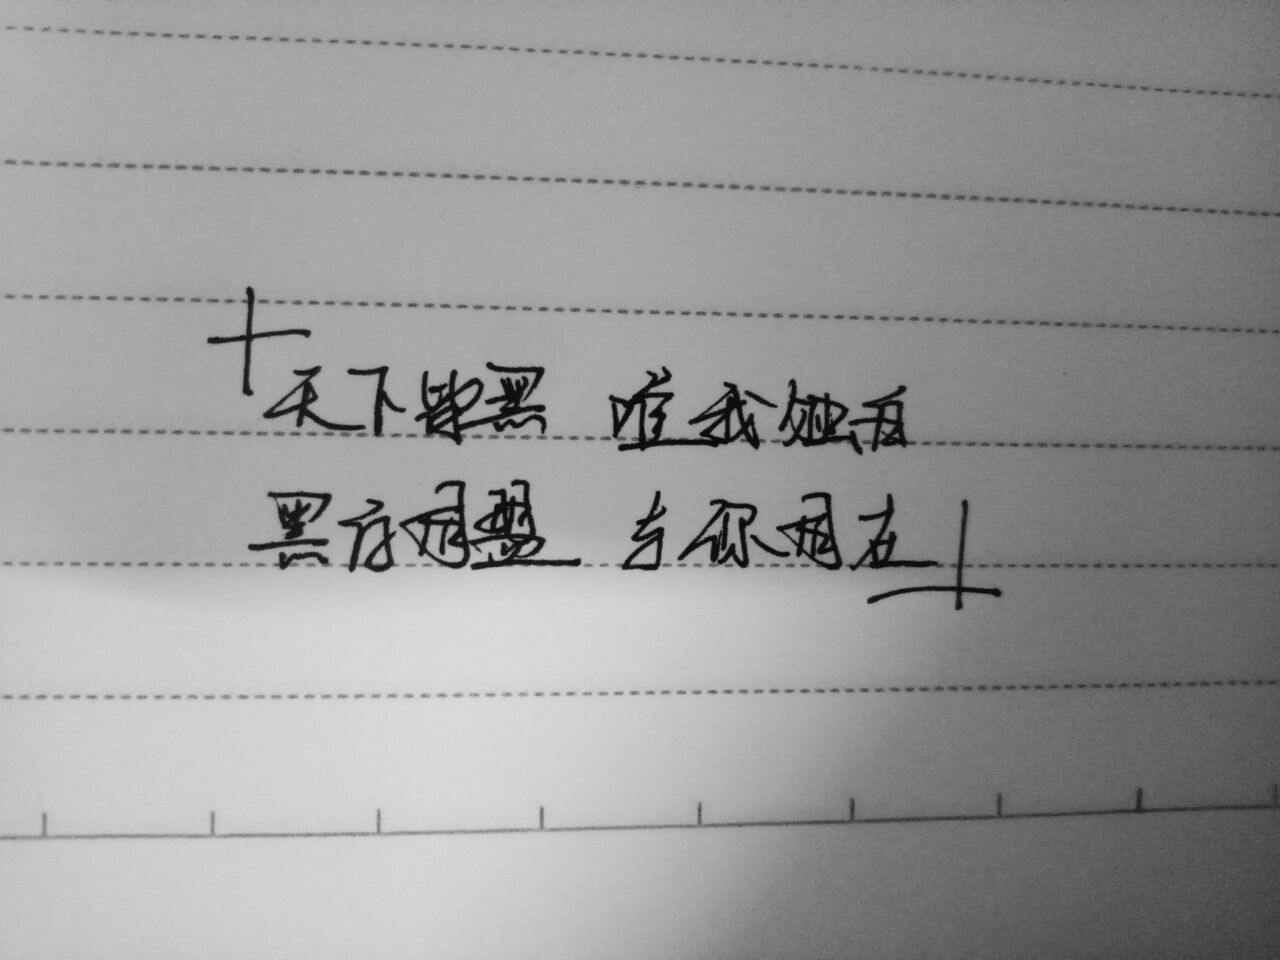 天下皆黑 唯我独白
黑同盟 与你同在